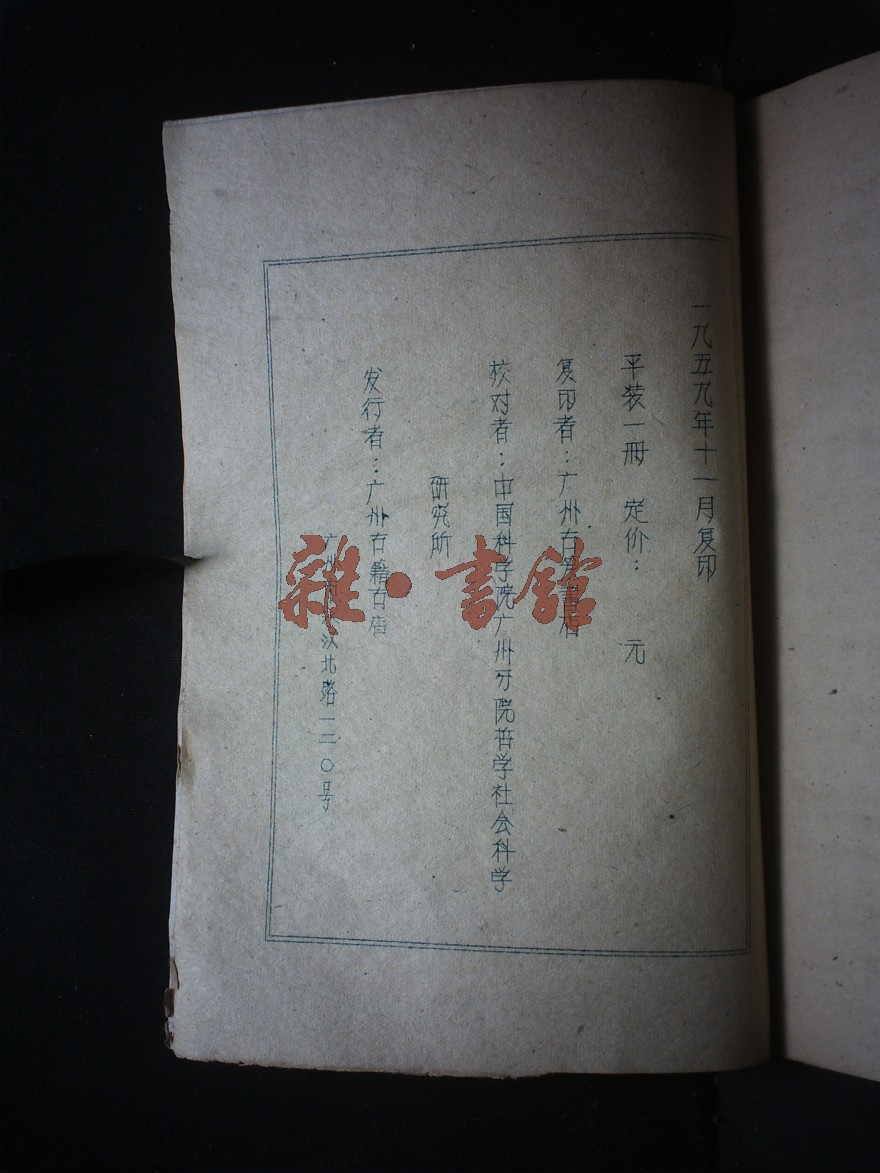 一九五九年十一月复印
平装一册 定价： 元
复印者：广州古籍書店
校对者：中国科学院广州分院哲学社会科学
研究所
发行者：广州古籍古店
广州市 汉北路一二〇号
雜·書館